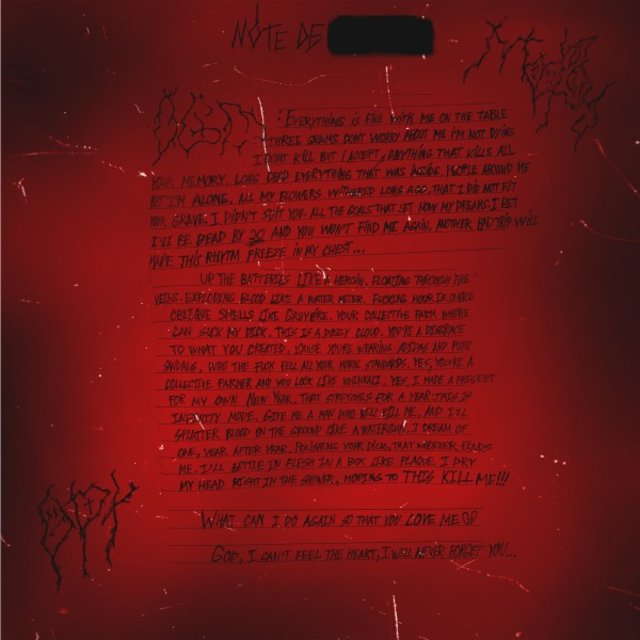 NOTE DE
: EVERYTHING IS FINE WITH ME ON THE TABLE
THREE GRAMS DON'T WORRY ABOUT ME I'M NOT DYING
I DON'T KILL BUT I ACCEPT, ANYTHING THAT KILLS ALL
YOUR MEMORY. LONG DEAD EVERYTHING THAT WAS INSIDE. PEOPLE AROUND ME
BUT I'M ALONE. ALL MY FLOWERS WITHERED LONG AGO. THAT I DID NOT PUT
YOUR GRAVE. I DIDN'T SUIT YOU. ALL THE GOALS THAT SET NOW MY DREAMS. I BET
I'LL BE DEAD BY 20 AND YOU WON'T FIND ME AGAIN. ANOTHER BAD TRIP WILL
MAKE THIS RHYTM FREEZE IN MY CHEST...
UP THE BATTERIES LIKE A HEROIN. FLOATING THROUGH THE
VEINS. EXPLODING BLOOD LIKE A WATER METER. FUCKING HOUR IN SMOKE
OBLIQUE SMELLS LIKE GRUYERE. YOUR COLLECTIVE FARM WHORE
CAN SUCK MY DICK. THIS IS A DIZZY CLOUD. YOU'RE A DISGRACE
TO WHAT YOU CREATED. 'CAUSE YOU'RE WEARING ADIDAS AND PUNK
SANDALS. WHO THE FUCK FELL ALL YOUR MORAL STANDARDS. YES, YOU'RE A
COLLECTIVE FARMER AND YOU LOOK LIKE. YES, I MADE A PRESENT
FOR MY OWN NEW YEAR. THAT STRETCHES FOR A YEAR THIS IS
INFINITY MODE. GIVE ME A MAN WHO WILL KILL ME, AND I'LL
SPLATTER BLOOD ON THE GROUND LIKE A WATERGUN. I DREAM OF
ONE, YEAR AFTER YEAR. POLISHING YOUR DICK, THAT WHOEVER FLOODS
ME. I'LL SETTLE IN FLESH IN A BOX LIKE PLAQUE. I DRY
MY HEAD RIGHT IN THE SHOWER, HOPING TO THIS KILL ME!!!
WHAT CAN I DO AGAIN SO THAT YOU LOVE ME
GOD, I CAN'T FEEL THE HEART, I WILL NEVER FORGET YOU...